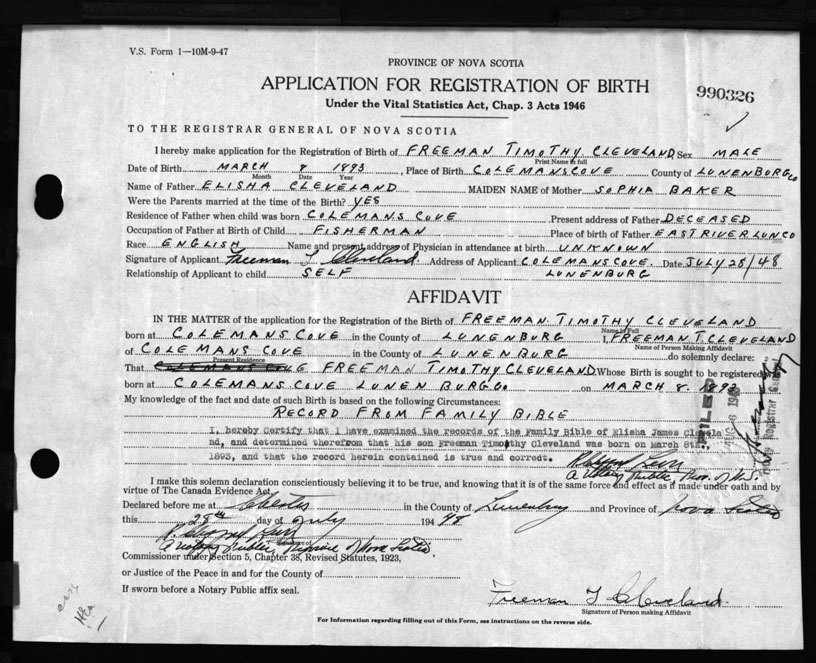 V.S. Form 1—10M-9-47
PROVINCE OF NOVA SCOTIA
APPLICATION FOR REGISTRATION OF BIRTH
990326
Under the Vital Statistics Act, Chap. 3 Acts 1946
TO THE REGISTRAR GENERAL OF NOVA SCOTIA
I hereby make application for the Registration of Birth of FREEMAN TIMOTHY CLEVELAND Sex MALE
Print Name in full
Date of Birth MARCH 8 1893, Place of Birth COLEMANS COVE County of LUNENBURG CO
Month Date Year
Name of Father ELISHA CLEVELAND MAIDEN NAME of Mother SOPHIA BAKER
Were the Parents married at the time of the Birth? YES
Residence of Father when child was born COLEMANS COVE Present address of Father DECEASED
Occupation of Father at Birth of Child FISHERMAN Place of birth of Father EAST RIVER LUN CO
Race ENGLISH Name and present address of Physician in attendance at birth UNKNOWN
Signature of Applicant Freeman T Cleveland. Address of Applicant COLEMANS COVE. Date JULY 28/48
Relationship of Applicant to child SELF LUNENBURG
AFFIDAVIT
IN THE MATTER of the application for the Registration of the Birth of FREEMAN TIMOTHY CLEVELAND
Name in Full
born at COLEMANS COVE in the County of LUNENBURG I, FREEMAN T. CLEVELAND
Name of Person Making Affidavit
of COLEMANS COVE in the County of LUNENBURG do solemnly declare:
Present Residence
That COLEMANS COVE FREEMAN TIMOTHY CLEVELAND Whose Birth is sought to be registered was
born at COLEMANS COVE LUNENBURG Co. on MARCH 8. 1893
My knowledge of the fact and date of such Birth is based on the following Circumstances:
RECORD FROM FAMILY BIBLE
I, hereby Certify that I have examined the records of the Family Bible of Elisha James Clevela
nd, and determined therefrom that his son Freeman Timothy Cleveland was born on March 8th
1893, and that the record herein contained is true and correct.
A Notary Public Prov. of N.S.
FILED
Registrar
I make this solemn declaration conscientiously believing it to be true, and knowing that it is of the same force and effect as if made under oath and by
virtue of The Canada Evidence Act.
Declared before me at Chester in the County of Lunenburg and Province of Nova Scotia
this 28th day of July 1948
A Notary Public, Province of Nova Scotia
Commissioner under Section 5, Chapter 38, Revised Statutes, 1923,
or Justice of the Peace in and for the County of
If sworn before a Notary Public affix seal.
Freeman T Cleveland.
Signature of Person making Affidavit
For Information regarding filling out of this Form, see instructions on the reverse side.